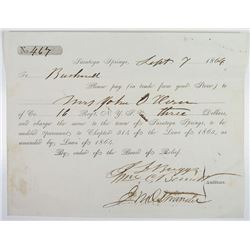 No 467
Saratoga Springs, Sept 7 1864
To Bushnell
Please pay (in trade from your Store) to
Mrs John O
of Co. 16 Regt. N. Y. S. three Dollars,
and charge the same to the town of Saratoga Springs, to be
audited pursuant to Chapter 514 of the Laws of 1863, as
amended by Laws of 1864.
By order of the Board of Relief.
Auditors.